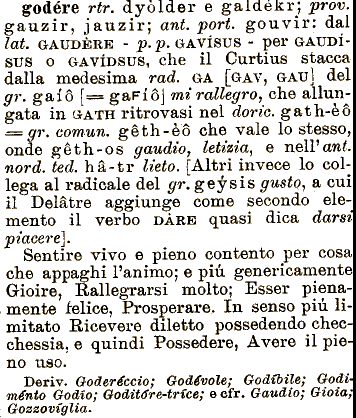 godére rtr. dyòlder e galdèkr; prov.
gauzir, jauzir; ant. port. gouvir: dal
lat. GAUDÈRE - p. p. GAVÍSUS - per GAUDÍ-
SUS o GAVÍDSUS, che il Curtius stacca
dalla medesima rad. GA [GAV, GAU] del
gr. gaíô [= gaFíô] mi rallegro, che allun-
gata in GATH ritrovasi nel doric. gath-èô
= gr. comun. gêth-èô che vale lo stesso,
onde gêth-os gaudio, letizia, e nell'ant.
nord. ted. hâ-tr lieto. [Altri invece lo col-
lega al radicale del gr. geýsis gusto, a cui
il Delâtre aggiunge come secondo ele-
mento il verbo DÀRE quasi dica darsi
piacere].
Sentire vivo e pieno contento per cosa
che appaghi l'animo; e piú genericamente
Gioire, Rallegrarsi molto; Esser piena-
mente felice, Prosperare. In senso piú li-
mitato Ricevere diletto possedendo chec-
chessia, e quindi Possedere, Avere il pie-
no uso.
Deriv. Goderéccio; Godévole; Godíbile; Godi-
ménto Godio; Goditóre-tríce; e cfr. Gaudio; Gioia;
Gozzovíglia.